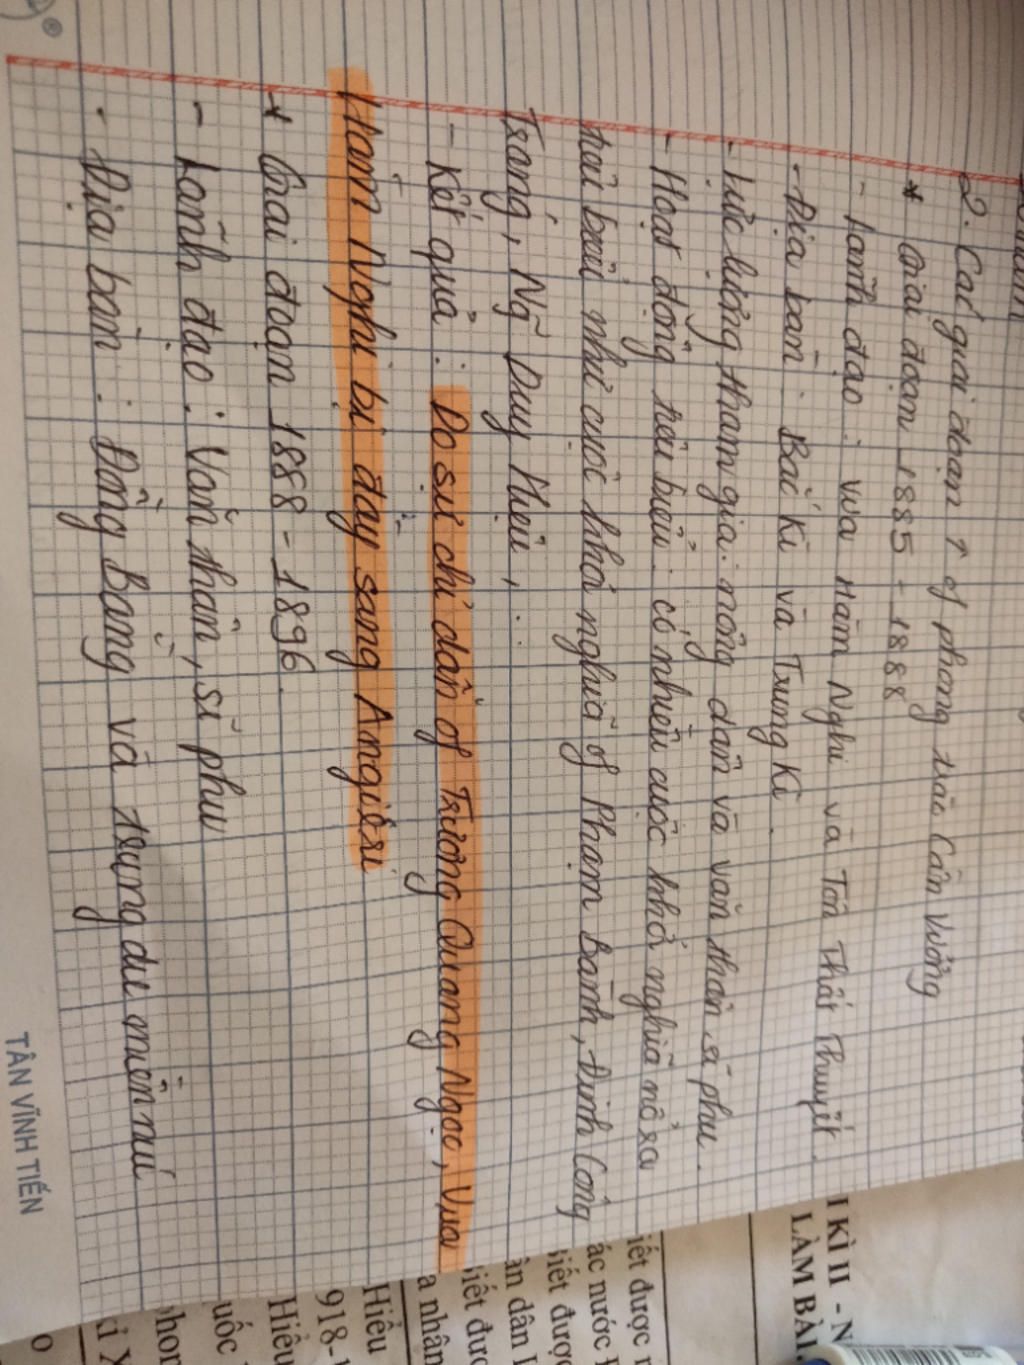 2. Các giai đoạn ↑ of phong trào Cần Vương
* Giai đoạn 1885 - 1888
- Lãnh đạo: vua Hàm Nghi và Tôn Thất Thuyết.
- Địa bàn: Bắc Kì và Trung Kì.
- Lực lượng tham gia: nông dân và văn thân sĩ phu.
- Hoạt động tiêu biểu: có nhiều cuộc khởi nghĩa nổ ra
tiêu biểu như cuộc khởi nghĩa of Phạm Bành, Đinh Công
Tráng, Ng~ Duy Hiệu,...
- Kết quả: Do sự chỉ dẫn of Trương Quang Ngọc, Vua
Hàm Nghi bị đày sang Angiêri
* Giai đoạn 1888 - 1896.
- Lãnh đạo: Văn thân, sĩ phu
- Địa bàn: Đồng Bằng và trung du miền núi
TÂN VĨNH TIẾN
I KÌ II - N
LÀM BÀI
iết được
ác nước
iết được
ân dân
iết đư
a nhân
Hiểu
918-
Hiểu
uốc
phon
kỉ X